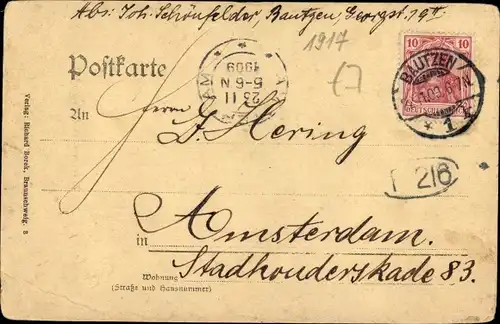 Abs. Joh. Schönfelder, Bautzen, Georgst. 19 II
1917
Postkarte
1909
5-6 N
23 11
AM
10 10
BAUTZEN
* 1
An
Herrn
D. Hering
216
in Amsterdam.
Stadhouderskade 83.
Wohnung
(Straße und Hausnummer)
Verlag: Richard Borek, Braunschweig. 8